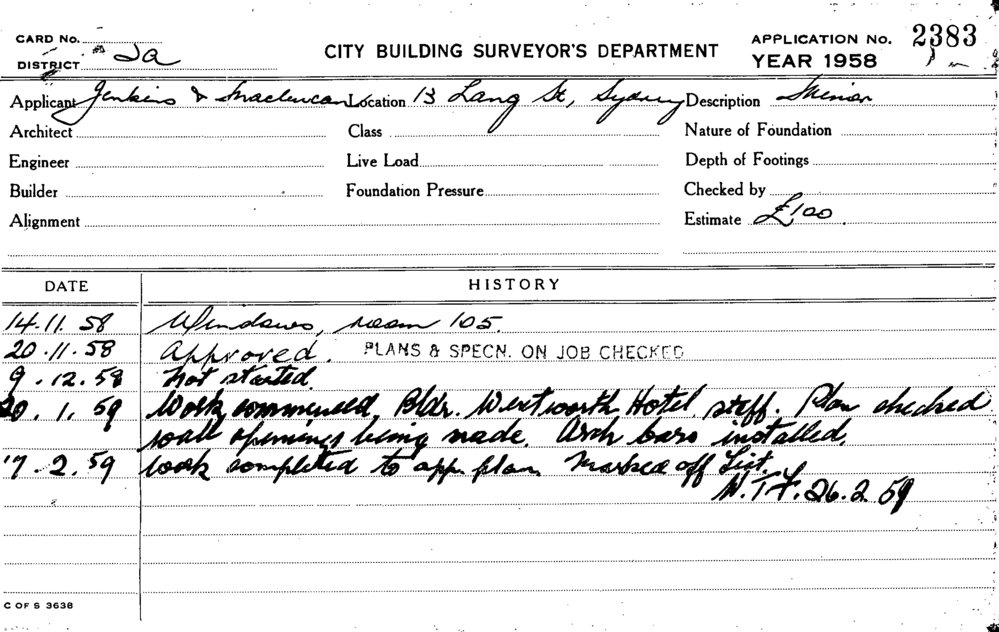 CARD No.
DISTRICT 2a
CITY BUILDING SURVEYOR'S DEPARTMENT
APPLICATION No. 2383
YEAR 1958
Applicant Jenkins & Maclurcan Location 13 Lang St, Sydney Description Minor
Architect Class Nature of Foundation
Engineer Live Load Depth of Footings
Builder Foundation Pressure Checked by
Alignment Estimate £100.
DATE HISTORY
14.11.58 Windows, room 105.
20.11.58 Approved. PLANS & SPECN. ON JOB CHECKED
9.12.58 Not started.
20.1.59 Work commenced, Bldr. Wentworth Hotel staff. Plan checked
wall openings being made. Arch bars installed.
17.2.59 Work completed to app. plan. Marked off List.
26.2.59
C OF S 3638